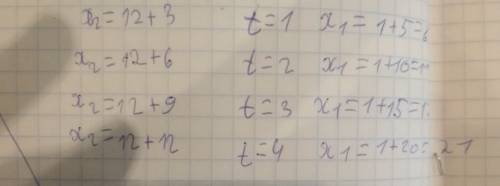 x₂=12+3 t=1 x₁=1+5=6
x₂=12+6 t=2 x₁=1+10=11
x₂=12+9 t=3 x₁=1+15=1
x₂=12+12 t=4 x₁=1+20=21